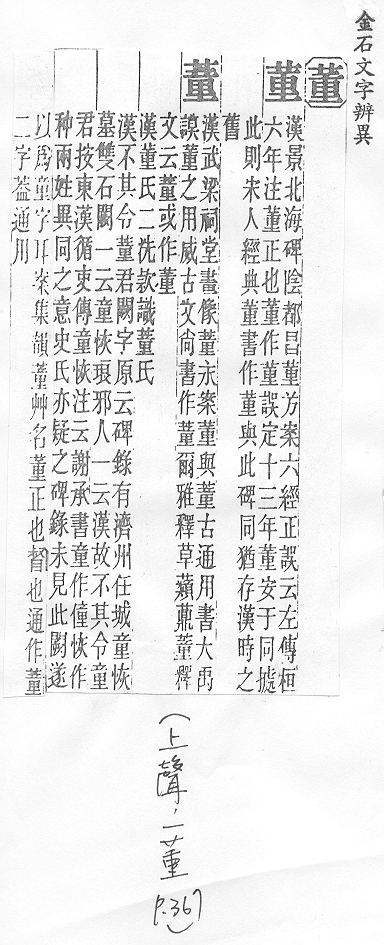 金石文字辨異
董
董 漢景北海碑陰都昌董方案六經正誤云左傳桓
六年注董正也董作董誤定十三年董安于同據
此則宋人經典董書作董與此碑同猶存漢時之
舊
董 漢武梁祠堂畫像董永案董與董古通用書大禹
謨董之用威古文尚書作董爾雅釋草蘱薡董釋
文云董或作董
漢董氏二洗款識董氏
漢不其令董君闕字原云碑錄有濟州任城童恢
墓雙石闕一云童恢琅邪人一云漢故不其令童
君按東漢循吏傳童恢注云謝承書童作僮恢作
种兩姓異同之意史氏亦疑之碑錄未見此闕遂
以為童字耳案集韻董艸名董正也督也通作董
二字蓋通用
(上聲,一董 p.367)